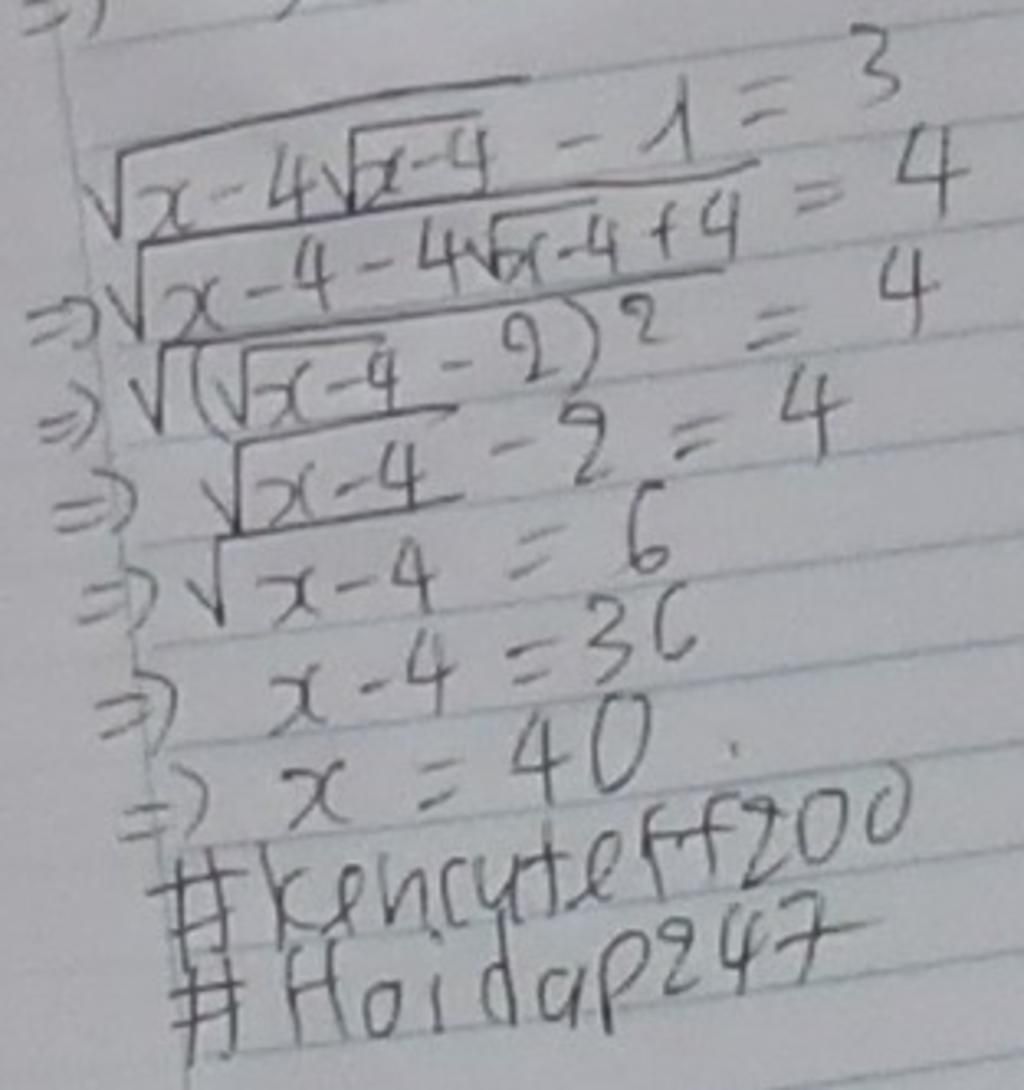 √(x-4√(x-4)) - 1 = 3
=> √(x-4-4√(x-4)+4) = 4
=> √((√(x-4) - 2)²) = 4
=> √(x-4) - 2 = 4
=> √(x-4) = 6
=> x-4 = 36
=> x = 40.
#kencuteff200
#Hoidap247